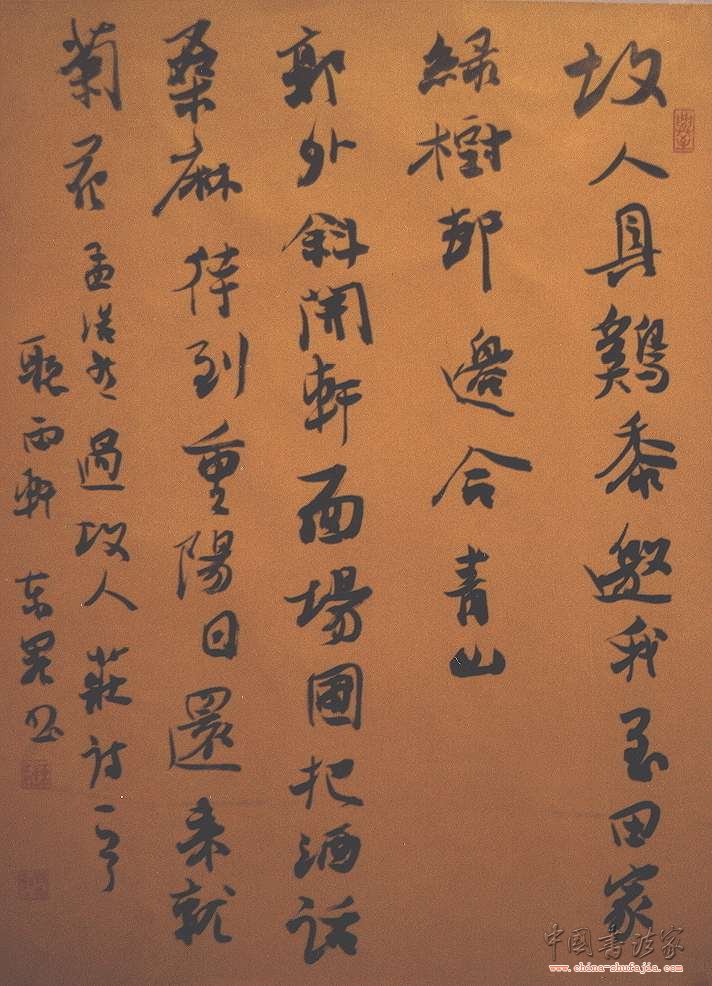 故人具鷄黍邀我至田家
緑樹邨邊合青山
郭外斜開軒面場圃把酒話
桑麻待到重陽日還来就
菊花
孟浩然過故人莊詩一首
聴雨軒
中国书法家
www.china-shufajia.com